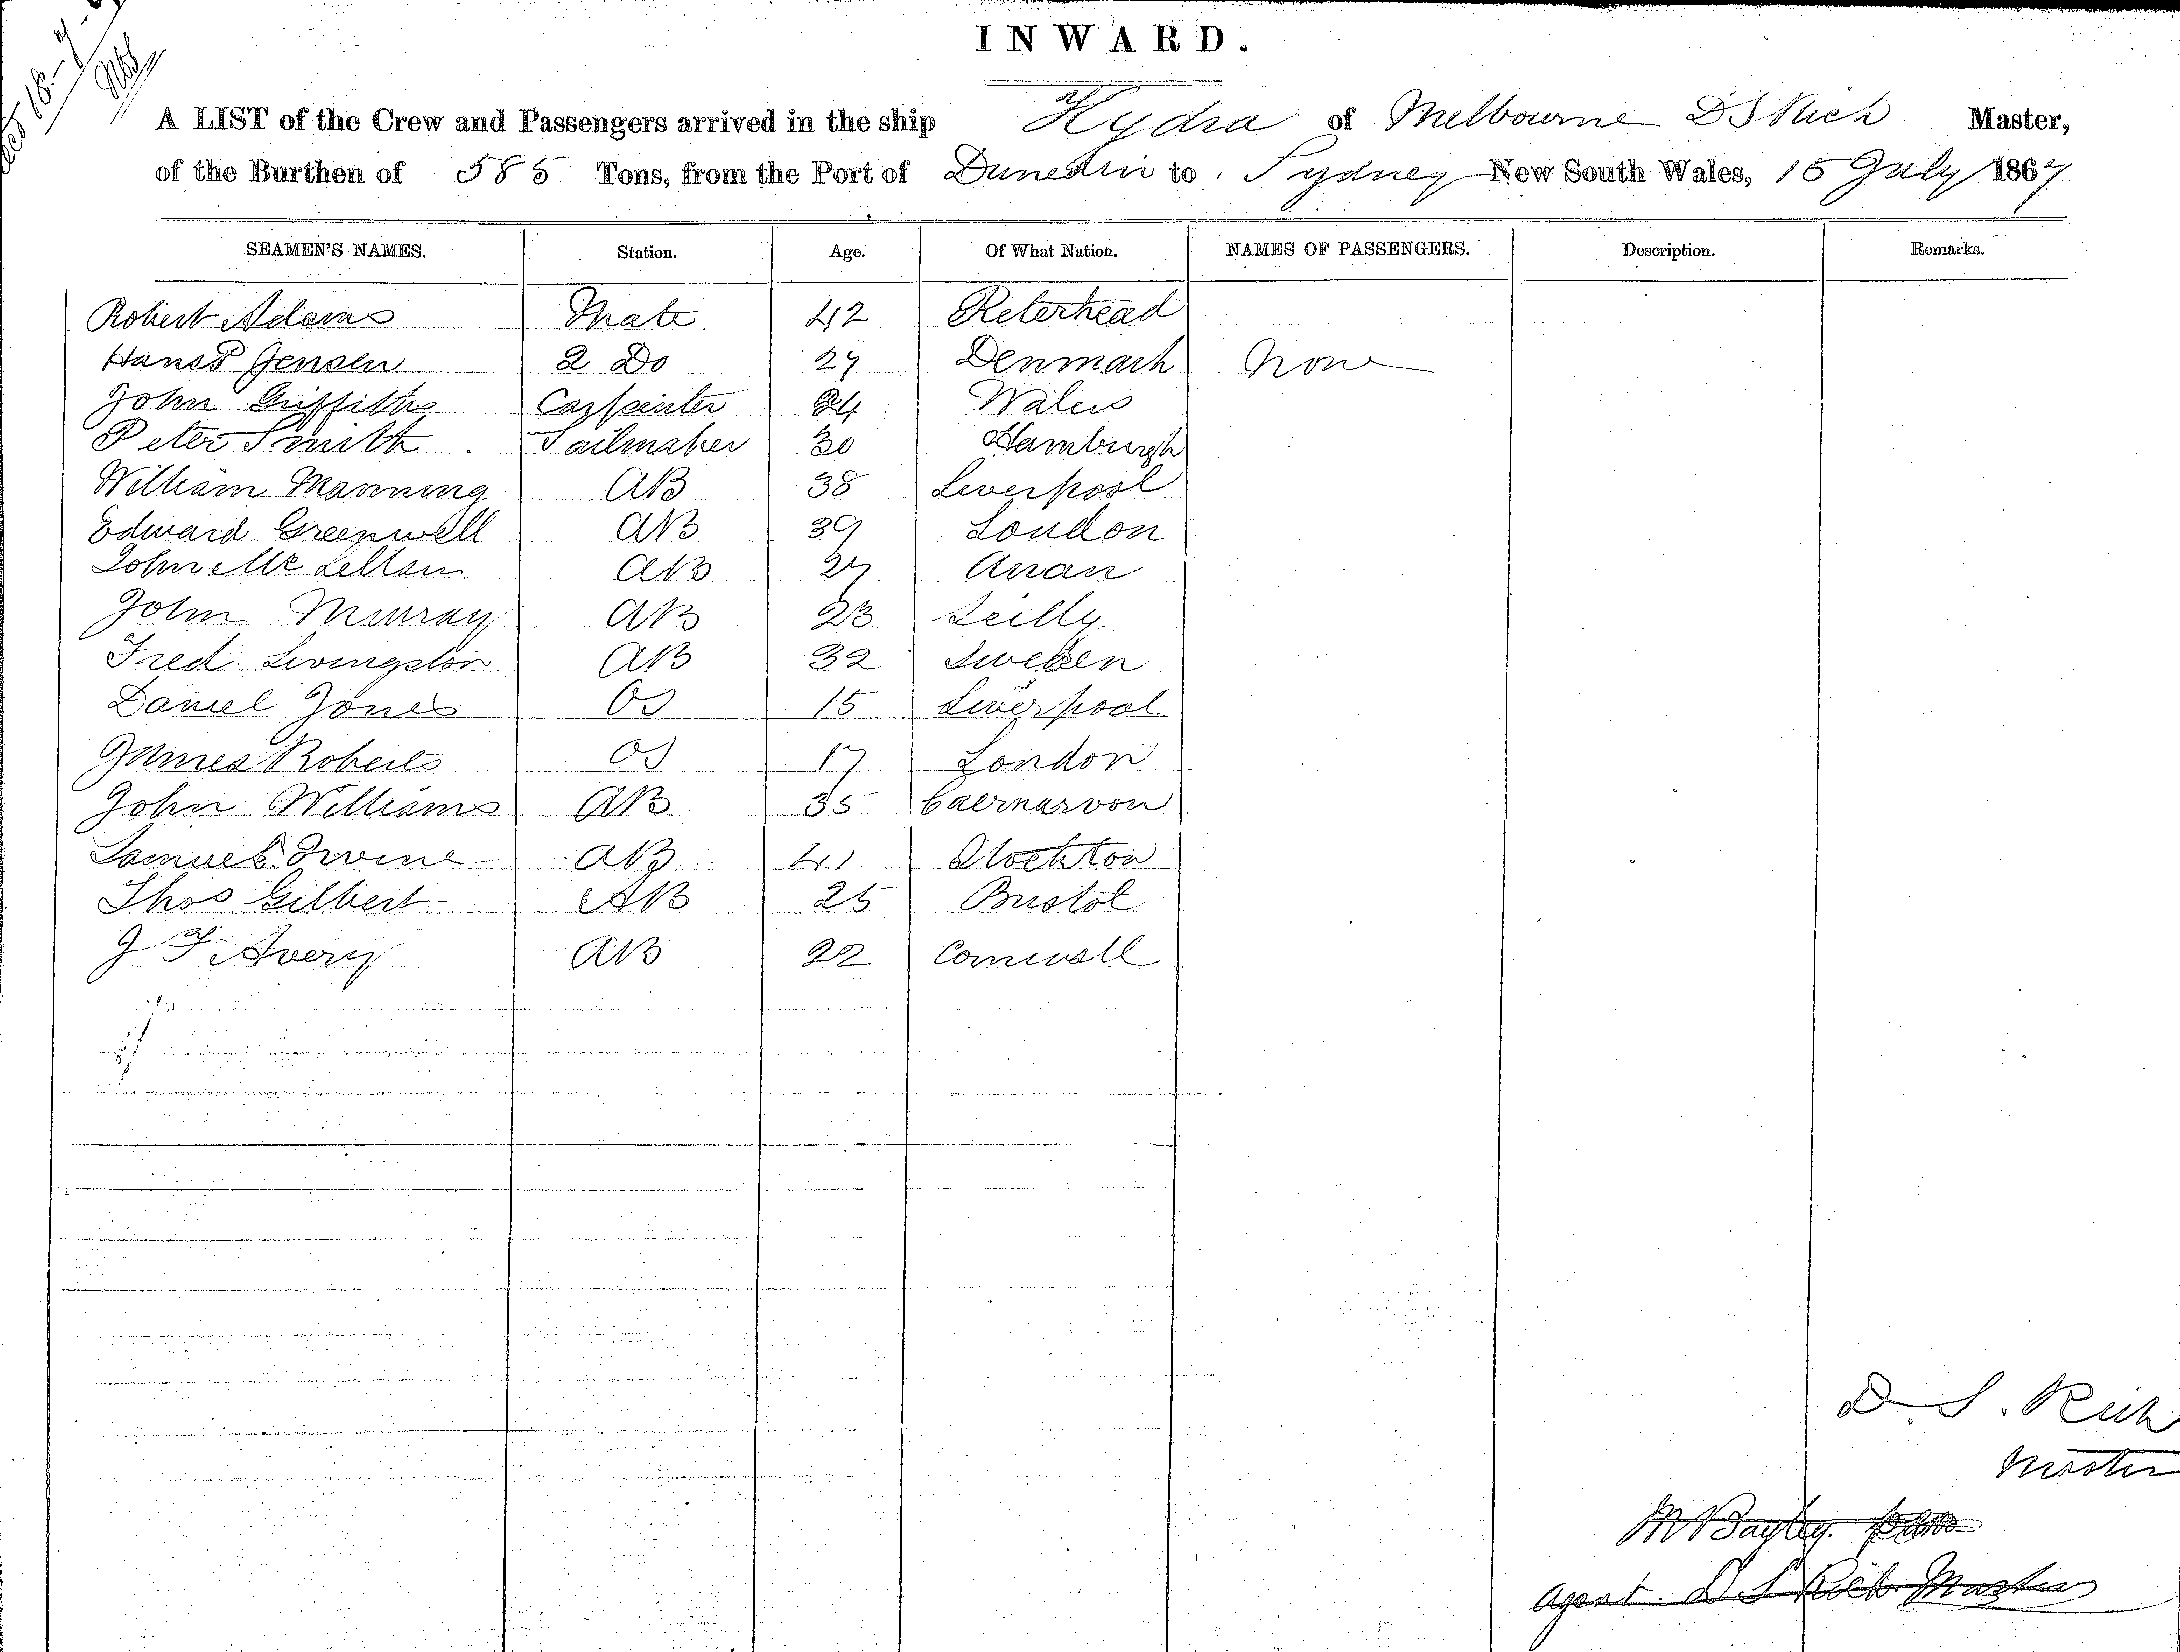 INWARD.
A LIST of the Crew and Passengers arrived in the ship Hydra of Melbourne D S Rich Master,
of the Burthen of 585 Tons, from the Port of Dunedin to Sydney New South Wales, 15 July 1867
SEAMEN'S NAMES. Station. Age. Of What Nation. NAMES OF PASSENGERS. Description. Remarks.
Robert Adams Mate 42 Peterhead
Hans P Jensen 2 Do 27 Denmark None
John Griffiths Carpenter 24 Wales
Peter Smith Sailmaker 30 Hamburgh
William Manning AB 38 Liverpool
Edward Greenwell AB 39 London
John AB 27 Anan
John Murray AB 23 Scilly
Fred Livingston AB 32 Sweden
Daniel Jones OS 15 Liverpool
James Roberts OS 17 London
John Williams AB 35 Caernarvon
Samuel Irvine AB 41 Stockton
Thos Gilbert AB 25 Bristol
J F Avery AB 22 Cornwall
D. S. Rich
Master
M Bayley.
Agent D S Rich Master